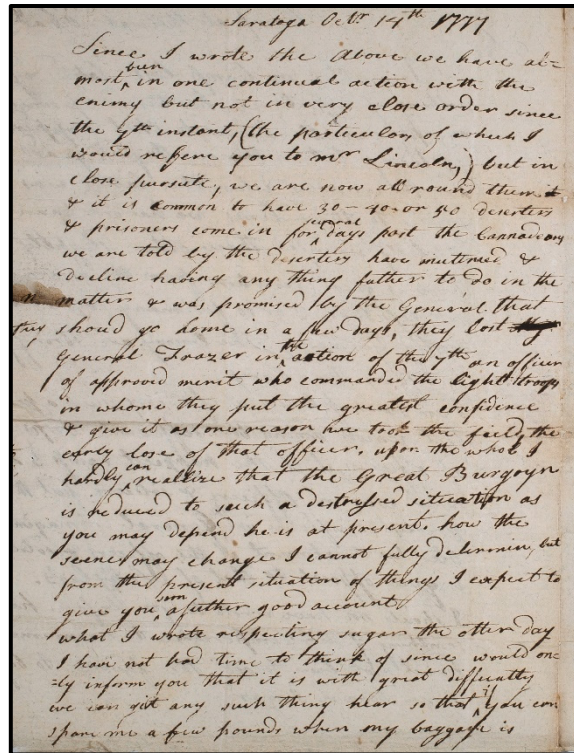 Saratoga Octr 14th 1777
Since I wrote the Above we have al=
most been in one continual action with the
enimy but not in very close order since
the 7th instant, (the particulars of which I
would refere you to mr Lincoln,) but in
close pursute, we are now all round them
& it is common to have 30 - 40 - or 50 deserters
& prisoners come in for several days past the Cannadeans
we are told by the deserters have mutined &
decline having any thing father to do in the
matter & was promised by the General that
they should go home in a few days, they lost
General Frazer in the action of the 7th an officer
of approved merit who commanded the light troops
in whome they put the greatest confidence
& give it as one reason we took the field, the
early lose of that officer, upon the whol I
hardly can realize that the Great Burgoyn
is reduced to such a destressed situation as
you may depend he is at present. how the
scene may change I cannot fully determin, but
from the present situation of things I expect to
give you soon a futher good account
what I wrote respecting sugar the other day
I have not had time to think of since would on=
=ly inform you that it is with great difficulty
we can git any such thing hear so that if you can
spare me a few pounds when my baggage is